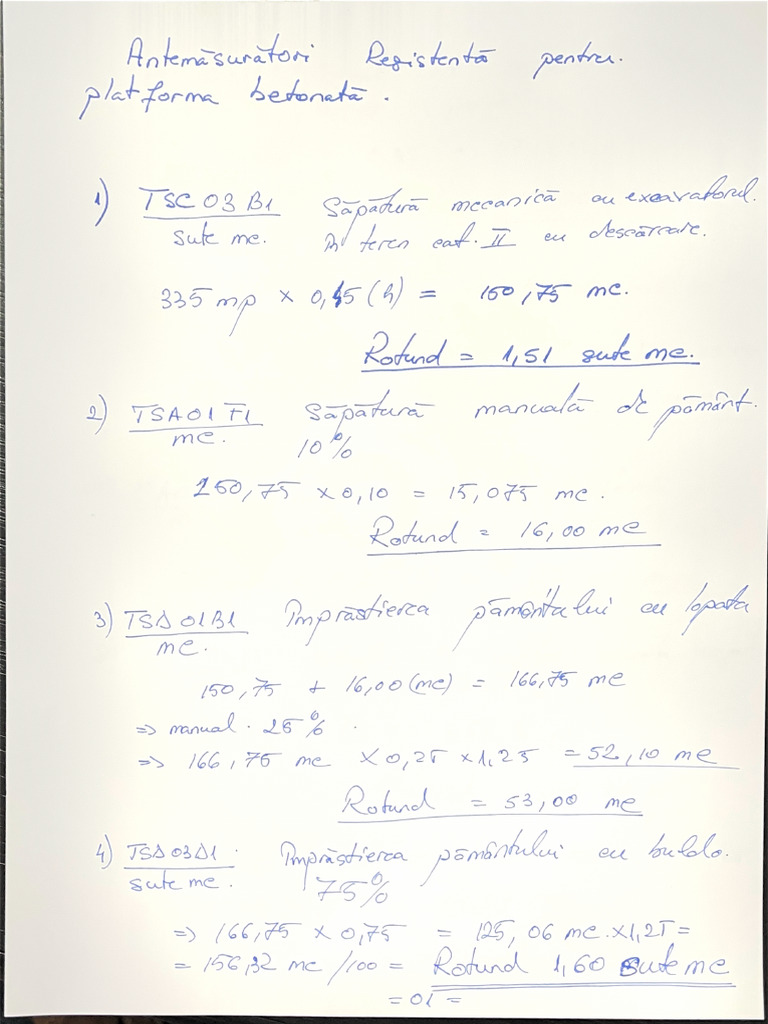 Antemăsurători Resistentă pentru.
platforma betonată.
1) TSC 03 B1 Săpătură mecanică cu excavatorul.
sute mc. În teren cat. II cu descărcare.
335 mp × 0,45 (h) = 150,75 mc.
Rotund = 1,51 sute mc.
2) TSA01 F1 Săpătură manuală de pământ.
mc. 10%
150,75 × 0,10 = 15,075 mc.
Rotund = 16,00 mc
3) TSD 01B1 Împrăstierea pământului cu lopata
mc.
150,75 + 16,00 (mc) = 166,75 mc
=> manual. 25%.
=> 166,75 mc × 0,25 × 1,25 = 52,10 mc
Rotund = 53,00 mc
4) TSD 03D1. Împrăstierea pământului cu buldo.
sute mc. 75%
=> 166,75 × 0,75 = 125,06 mc. × 1,25 =
= 156,32 mc /100 = Rotund 1,60 sute mc
= 01 =